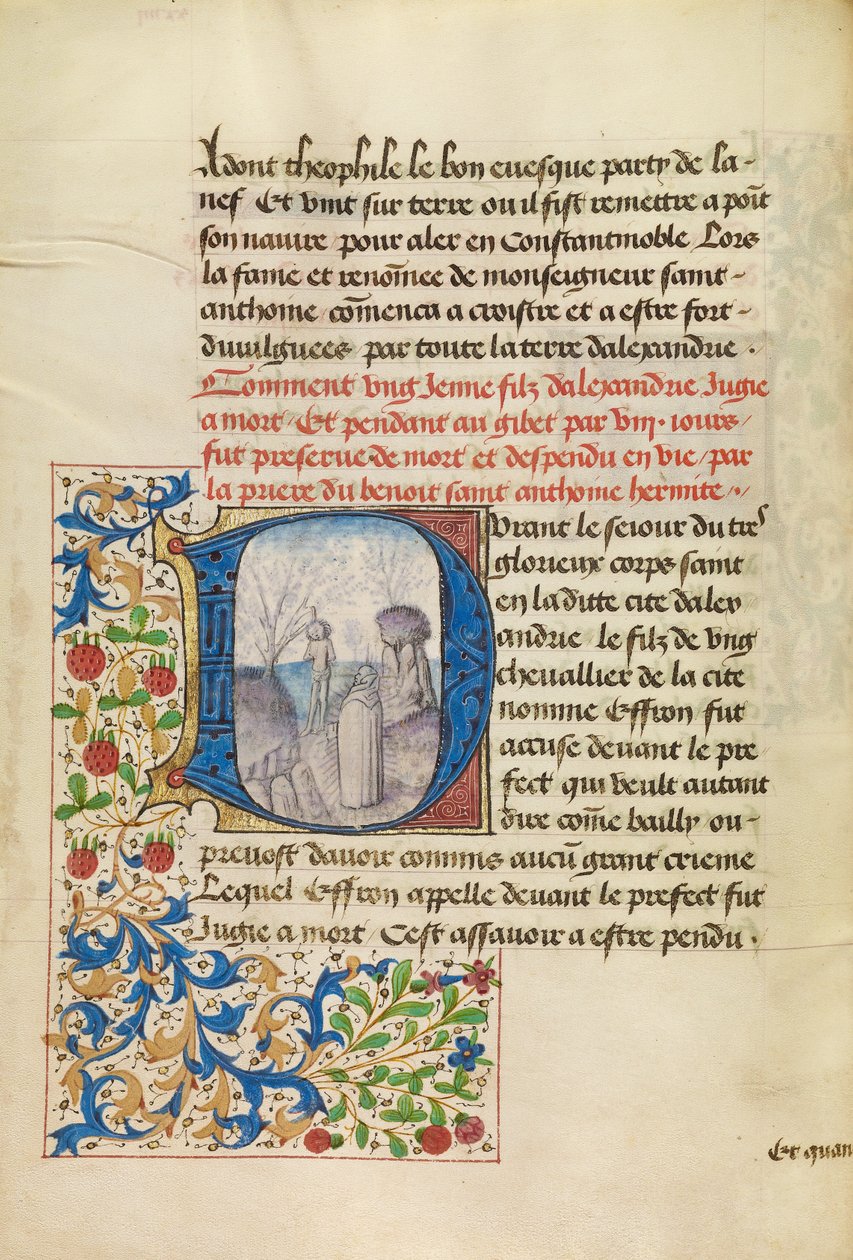 Adont theophile le bon euesque party de la-
nef Et vint sur terre ou il fist remettre a poīt
son nauire pour aler en Constantinoble Lors
la fame et renōmee de monseigneur saint-
anthoine cōmenca a croistre et a estre fort-
diuulguees par toute la terre dalexandrie .
Comment vng Jenne filz dalexandrie Jugie
a mort / Et pendant au gibet par viij. iours /
fut preserue de mort et despendu en vie / par
la priere du benoit saint anthoine hermite ..
Durant le seiour du tres
glorieux corps saint
en la ditte cite dalex
andrie le filz de vng
cheuallier de la cite
nomme Effron fut
accuse deuant le pre
fect qui veult autant
dire cōme bailly ou-
preuost dauoir commis aucū grant crieme
Lequel Effron appelle deuant le prefect fut
Jugie a mort / Cest assauoir a estre pendu .
Et quan